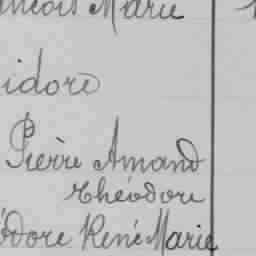 ancois Marie
idore
Pierre Amand
Théodore
éodore René Marie